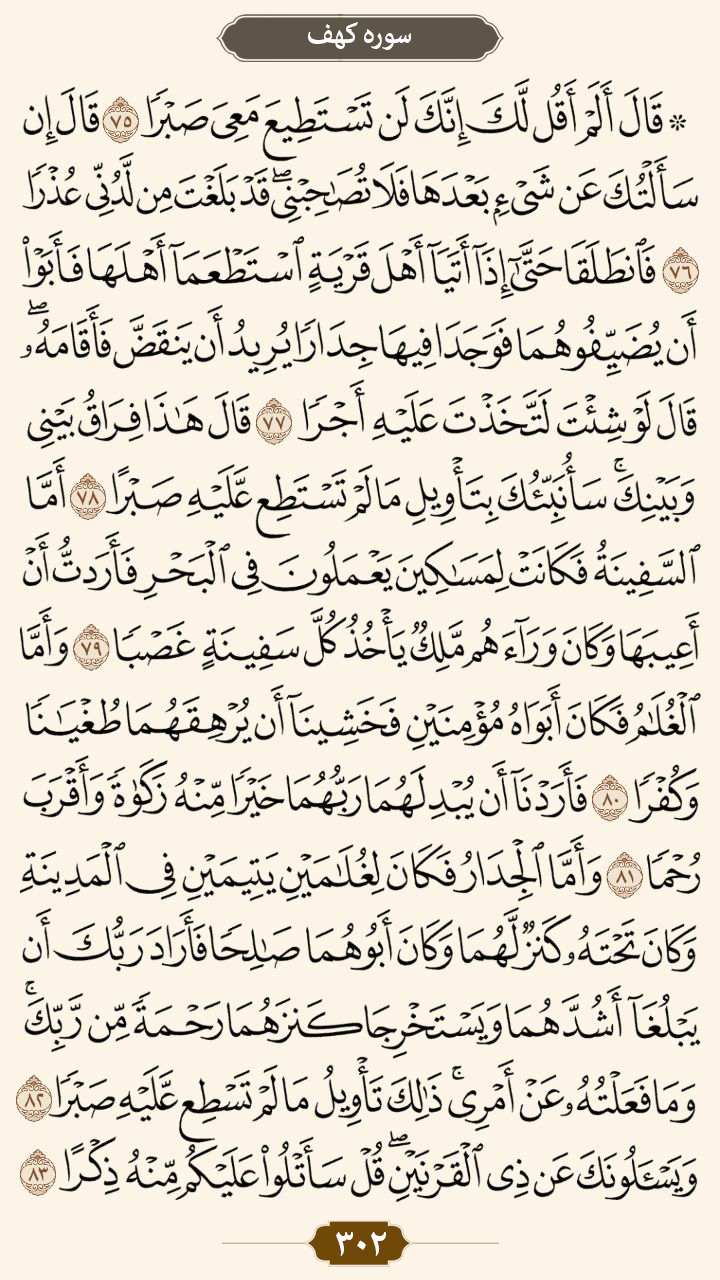 سوره کهف
* قَالَ أَلَمْ أَقُل لَّكَ إِنَّكَ لَن تَسْتَطِيعَ مَعِيَ صَبْرًا ٧٥ قَالَ إِن
سَأَلْتُكَ عَن شَىْءٍۭ بَعْدَهَا فَلَا تُصَـٰحِبْنِىۖ قَدْ بَلَغْتَ مِن لَّدُنِّى عُذْرًا
٧٦ فَٱنطَلَقَا حَتَّىٰٓ إِذَآ أَتَيَآ أَهْلَ قَرْيَةٍ ٱسْتَطْعَمَآ أَهْلَهَا فَأَبَوْا۟
أَن يُضَيِّفُوهُمَا فَوَجَدَا فِيهَا جِدَارًا يُرِيدُ أَن يَنقَضَّ فَأَقَامَهُۥۖ
قَالَ لَوْ شِئْتَ لَتَّخَذْتَ عَلَيْهِ أَجْرًا ٧٧ قَالَ هَـٰذَا فِرَاقُ بَيْنِى
وَبَيْنِكَۚ سَأُنَبِّئُكَ بِتَأْوِيلِ مَا لَمْ تَسْتَطِع عَّلَيْهِ صَبْرًا ٧٨ أَمَّا
ٱلسَّفِينَةُ فَكَانَتْ لِمَسَـٰكِينَ يَعْمَلُونَ فِى ٱلْبَحْرِ فَأَرَدتُّ أَنْ
أَعِيبَهَا وَكَانَ وَرَآءَهُم مَّلِكٌ يَأْخُذُ كُلَّ سَفِينَةٍ غَصْبًا ٧٩ وَأَمَّا
ٱلْغُلَـٰمُ فَكَانَ أَبَوَاهُ مُؤْمِنَيْنِ فَخَشِينَآ أَن يُرْهِقَهُمَا طُغْيَـٰنًا
وَكُفْرًا ٨٠ فَأَرَدْنَآ أَن يُبْدِلَهُمَا رَبُّهُمَا خَيْرًا مِّنْهُ زَكَوٰةً وَأَقْرَبَ
رُحْمًا ٨١ وَأَمَّا ٱلْجِدَارُ فَكَانَ لِغُلَـٰمَيْنِ يَتِيمَيْنِ فِى ٱلْمَدِينَةِ
وَكَانَ تَحْتَهُۥ كَنزٌ لَّهُمَا وَكَانَ أَبُوهُمَا صَـٰلِحًا فَأَرَادَ رَبُّكَ أَن
يَبْلُغَآ أَشُدَّهُمَا وَيَسْتَخْرِجَا كَنزَهُمَا رَحْمَةً مِّن رَّبِّكَۚ
وَمَا فَعَلْتُهُۥ عَنْ أَمْرِىۚ ذَٰلِكَ تَأْوِيلُ مَا لَمْ تَسْطِع عَّلَيْهِ صَبْرًا ٨٢
وَيَسْـَٔلُونَكَ عَن ذِى ٱلْقَرْنَيْنِۖ قُلْ سَأَتْلُوا۟ عَلَيْكُم مِّنْهُ ذِكْرًا ٨٣
٣٠٢